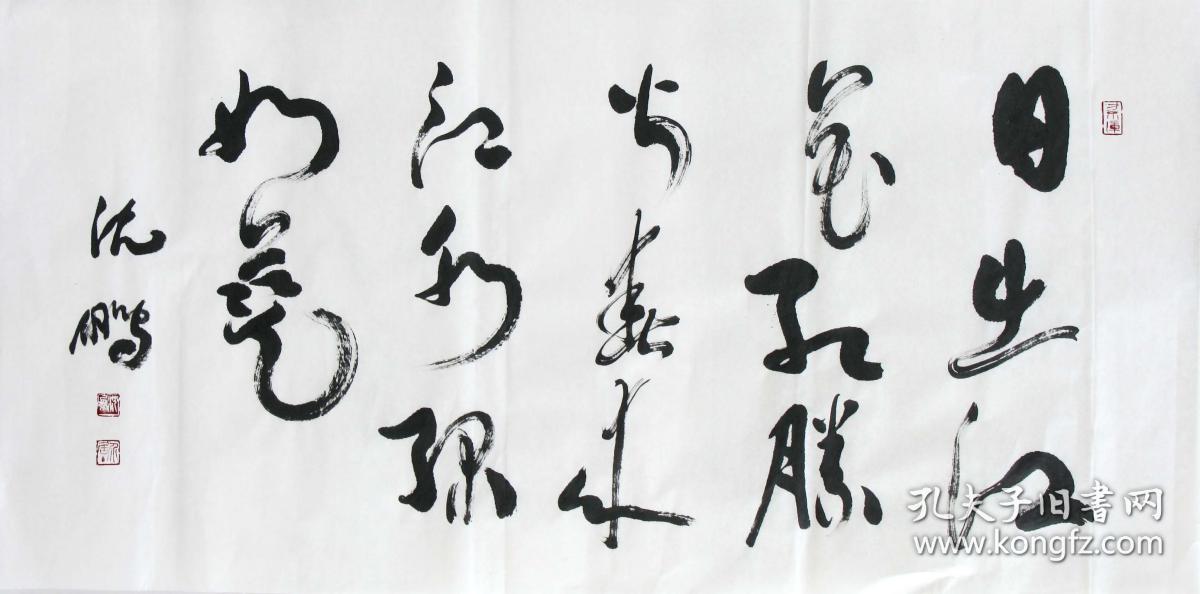 日出江
花红勝
火春来
江水绿
如蓝
沈鹏
孔夫子旧书网
www.kongfz.com